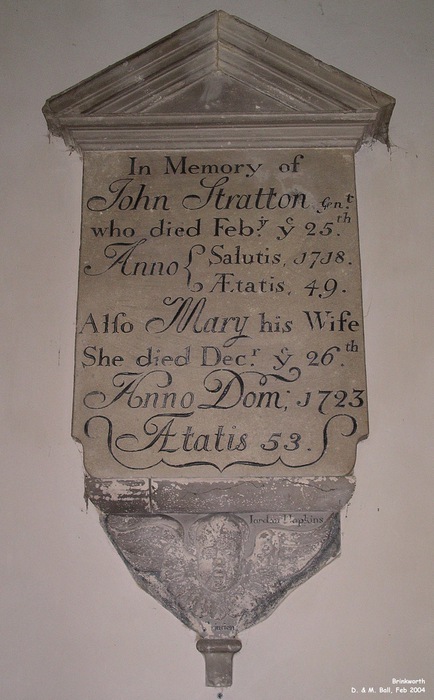 In Memory of
John Stratton Gent.
who died Feb.y ye 25.th
Anno { Salutis, 1718.
Ætatis, 49.
Alſo Mary his Wife
She died Dec.r ye 26.th
Anno Dom; 1723
Ætatis 53.
Hopkins
Brinkworth
D. & M. Ball, Feb 2004